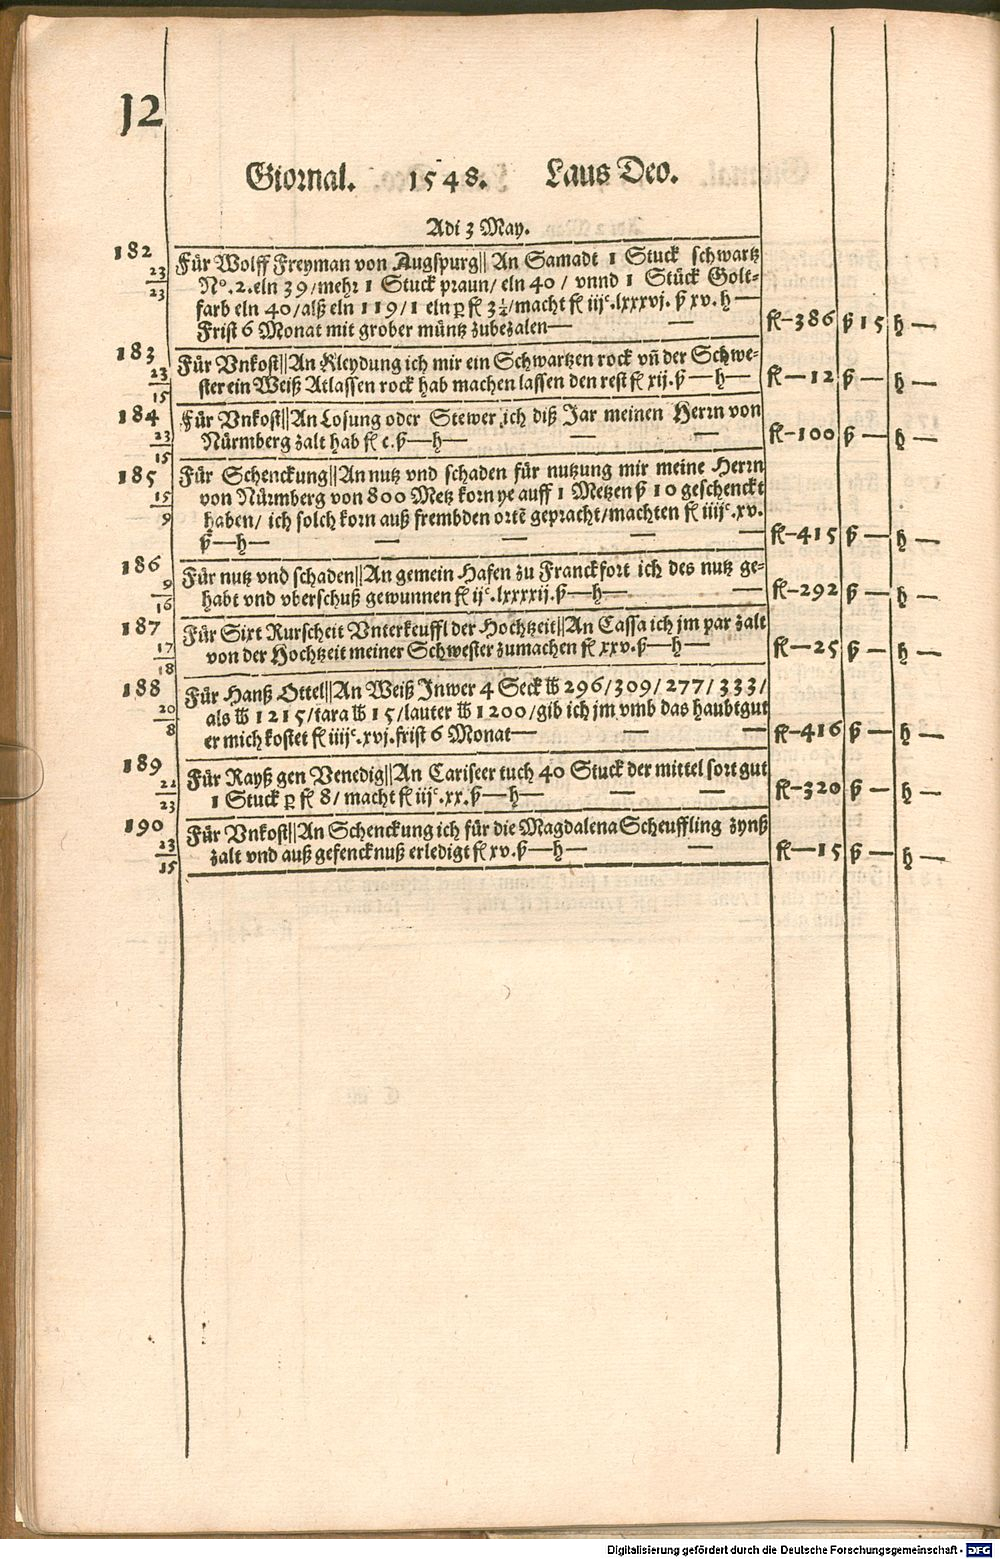 12
Giornal. 1548. Laus Deo.
Adi 3 May.
182 23/23 Für Wolff Freyman von Augspurg|| An Samadt 1 Stuck schwartz
Nº.2.eln 39/mehr 1 Stuck praun/ eln 40 / vnnd 1 Stück Golt-
farb eln 40/alß eln 119/1 eln ꝑ fl 3½/macht fl iijᶜ.lxxxvj. ß xv. h—
Frist 6 Monat mit grober müntz zubezalen— — fl—386 ß 15 h —
183 23/15 Für Vnkost||An Kleydung ich mir ein Schwartzen rock vñ der Schwe-
ster ein Weiß Atlassen rock hab machen lassen den rest fl xij.ß—h— fl—12 ß — h —
184 23/15 Für Vnkost||An Losung oder Stewer ich diß Jar meinen Herrn von
Nürmberg zalt hab fl c.ß—h— — — fl—100 ß — h —
185 15/9 Für Schenckung||An nutz vnd schaden für nutzung mir meine Herrn
von Nürmberg von 800 Metz korn ye auff 1 Metzen ß 10 geschenckt
haben/ ich solch korn auß frembden ortē gepracht/machten fl iiijᶜ.xv.
ß—h— — — — — fl—415 ß — h —
186 9/16 Für nutz vnd schaden||An gemein Hafen zu Franckfort ich des nutz ge-
habt vnd vberschuß gewunnen fl ijᶜ.lxxxxij.ß—h— — fl—292 ß — h —
187 17/18 Für Sixt Rurscheit Vnterkeuffl der Hochtzeit||An Cassa ich jm par zalt
von der Hochtzeit meiner Schwester zumachen fl xxv.ß—h— fl—25 ß — h —
188 20/8 Für Hanß Ottel||An Weiß Inwer 4 Seck ℔ 296/309/277/333/
als ℔ 1215/tara ℔ 15/lauter ℔ 1200/gib ich jm vmb das haubtgut
er mich kostet fl iiijᶜ.xvj.frist 6 Monat— — fl—416 ß — h —
189 22/23 Für Rayß gen Venedig||An Cariseer tuch 40 Stuck der mittel sort gut
1 Stuck ꝑ fl 8/ macht fl iijᶜ.xx.ß—h— — — fl—320 ß — h —
190 23/15 Für Vnkost||An Schenckung ich für die Magdalena Scheuffling zynß
zalt vnd auß gefencknuß erledigt fl xv.ß—h— — fl—15 ß — h —
Digitalisierung gefördert durch die Deutsche Forschungsgemeinschaft - DFG